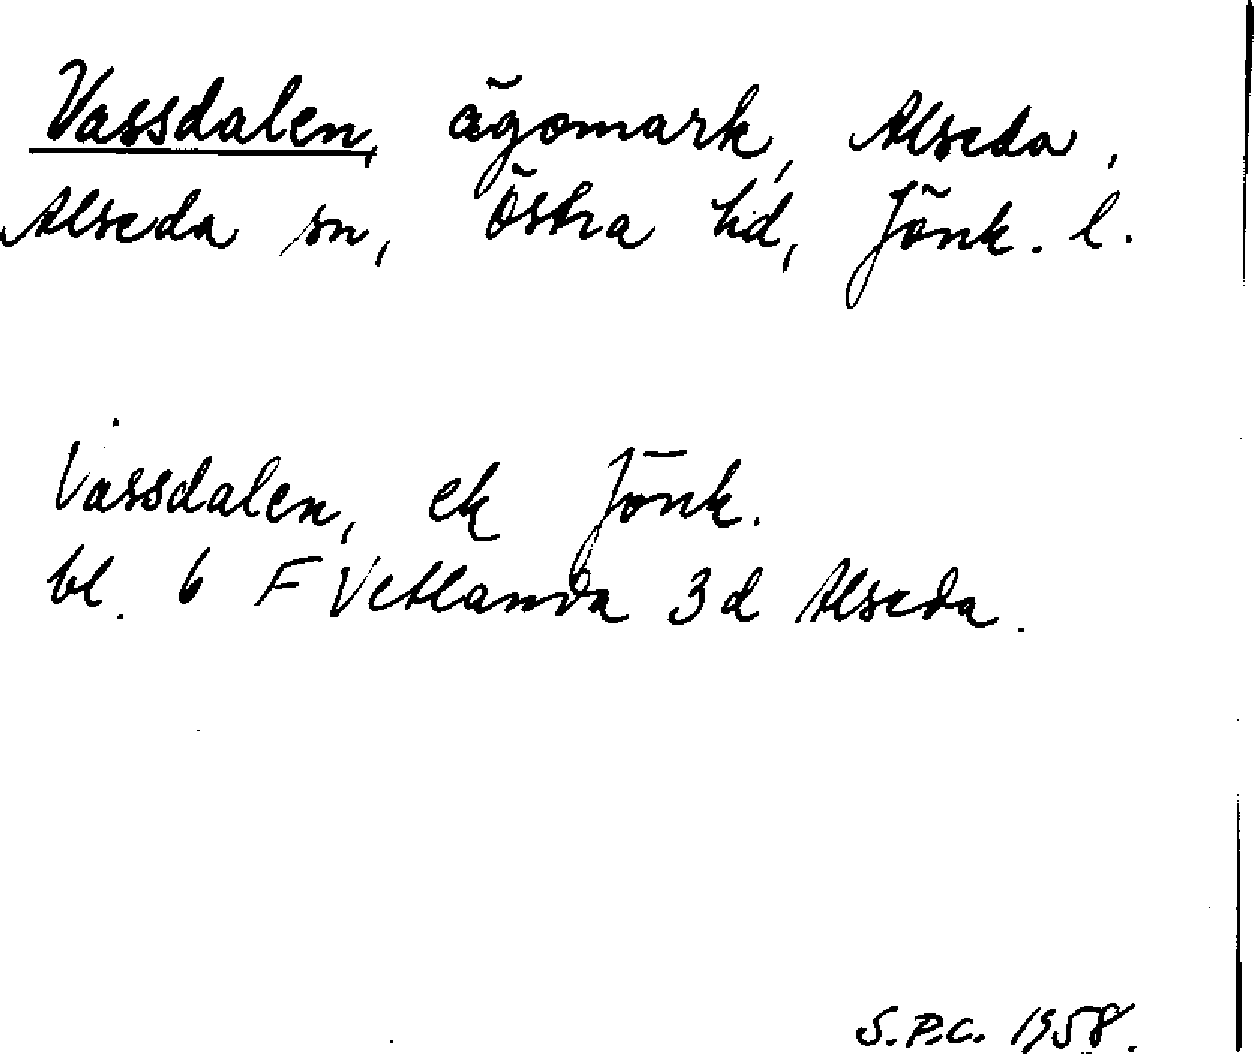 Vassdalen, ägomark, Alseda,
Alseda sn, Östra hd, Jönk. l.
Vassdalen, ek Jönk.
bl. 6 F Vetlanda 3d Alseda.
S.P.C. 1958.